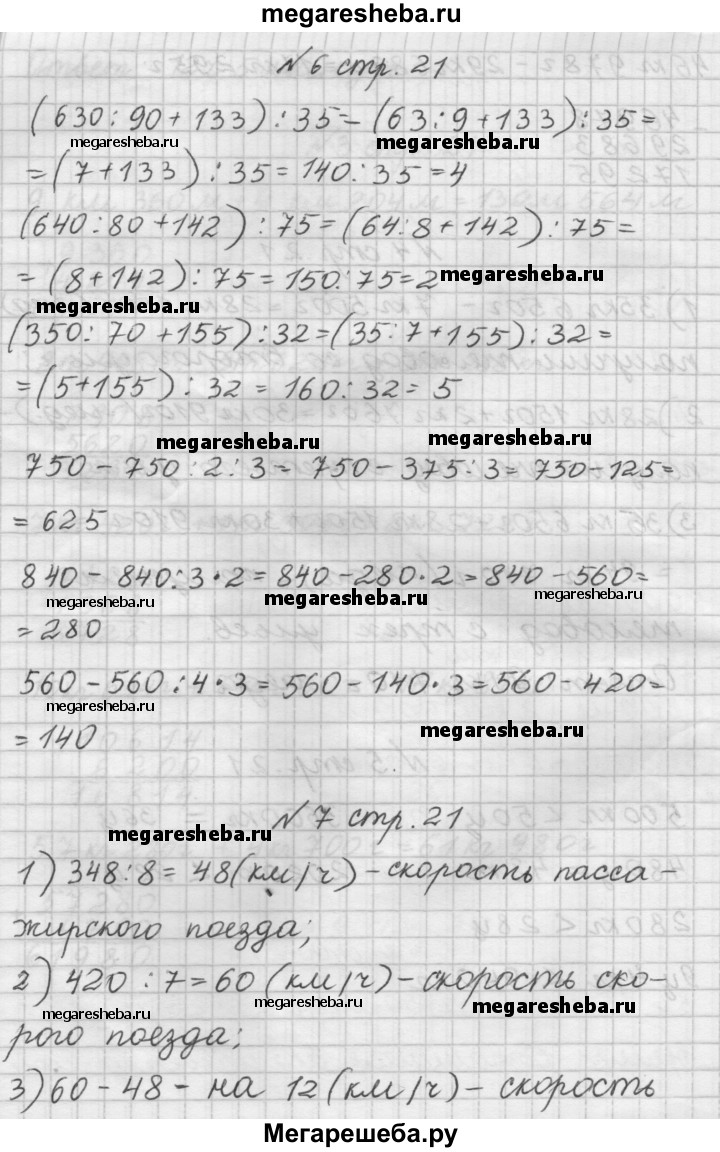 megaresheba.ru
№ 6 стр. 21
(630:90+133):35=(63:9+133):35=
megaresheba.ru megaresheba.ru
=(7+133):35=140:35=4
(640:80+142):75=(64:8+142):75=
=(8+142):75=150:75=2 megaresheba.ru
megaresheba.ru
(350:70+155):32=(35:7+155):32=
=(5+155):32=160:32=5
megaresheba.ru megaresheba.ru
750-750:2:3=750-375:3=750-125=
=625
840-840:3·2=840-280·2=840-560=
megaresheba.ru megaresheba.ru megaresheba.ru
=280
560-560:4·3=560-140·3=560-420=
megaresheba.ru megaresheba.ru
=140
№ 7 стр. 21
megaresheba.ru
1) 348:8=48(км/ч)-скорость пасса-
жирского поезда;
2) 420:7=60(км/ч)-скорость ско-
megaresheba.ru megaresheba.ru megaresheba.ru
рого поезда;
3) 60-48-на 12(км/ч)-скорость
Мегарешеба.ру